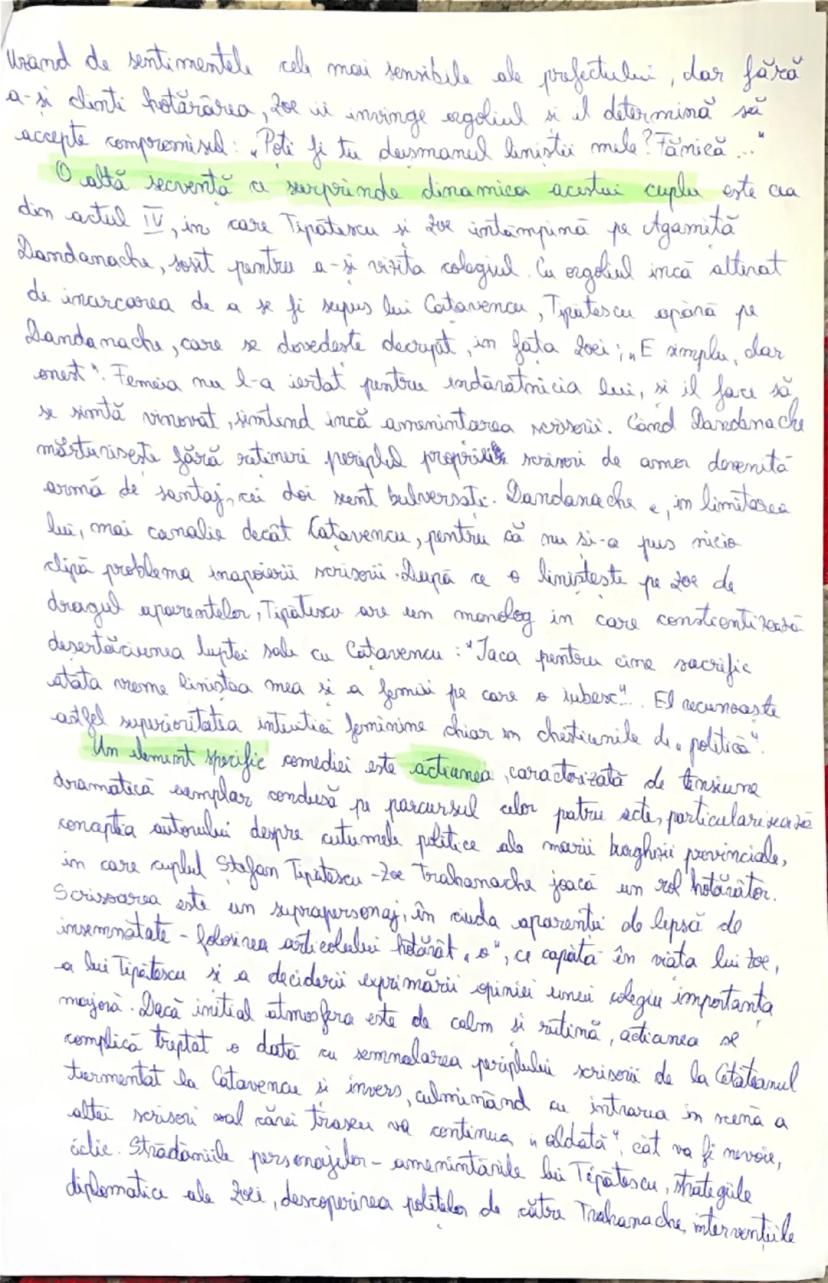 Uzând de sentimentele cele mai sensibile ale prefectului, dar fără
a-și clinti hotărârea, Zoe îi învinge orgoliul și îl determină să
accepte compromisul: „Poți fi tu dușmanul liniștii mele? Fănică..."
O altă secvență ce surprinde dinamica acestui cuplu este cea
din actul IV, în care Tipătescu și Zoe întâmpină pe Agamiță
Dandanache, sosit pentru a-și vizita colegiul. Cu orgoliul încă alterat
de încercarea de a se fi supus lui Cațavencu, Tipătescu apără pe
Dandanache, care se dovedește decrepit, în fața Zoei: „E simplu, dar
onest". Femeia nu l-a iertat pentru îndărătnicia lui, și îl face să
se simtă vinovat, simțend încă amenințarea scrisorii. Când Dandanache
mărturisește fără rețineri periplul propriei scrisori de amor devenită
armă de șantaj, cei doi sunt bulversați. Dandanache e, în limitarea
lui, mai canalie decât Cațavencu, pentru că nu și-a pus nicio
clipă problema înapoierii scrisorii. După ce o liniștește pe Zoe de
dragul aparențelor, Tipătescu are un monolog în care conștientizează
deșertăciunea luptei sale cu Cațavencu: "Iaca pentru cine sacrific
atâta vreme liniștea mea și a femeii pe care o iubesc"... El recunoaște
astfel superioritatea intuiției feminine chiar în chestiunile de „politică".
Un element specific comediei este acțiunea, caracterizată de tensiune
dramatică exemplar condusă pe parcursul celor patru acte, particularizează
concepția autorului despre cutumele politice ale marii burghezii provinciale,
în care cuplul Ștefan Tipătescu - Zoe Trahanache joacă un rol hotărâtor.
Scrisoarea este un suprapersonaj, în ciuda aparenței de lipsă de
însemnătate - folosirea articolului hotărât „o", ce capătă în viața lui Zoe,
a lui Tipătescu și a deciderii exprimării opiniei unui colegiu importanța
majoră. Dacă inițial atmosfera este de calm și rutină, acțiunea se
complică treptat o dată cu semnalarea periplului scrisorii de la Cetățeanul
turmentat la Cațavencu și invers, culminând cu intrarea în scenă a
altei scrisori al cărei traseu va continua „îldată", cât va fi nevoie,
ciclic. Strădaniile personajelor - amenințările lui Tipătescu, strategiile
diplomatice ale Zoei, descoperirea polițelor de către Trahanache, intervențiile